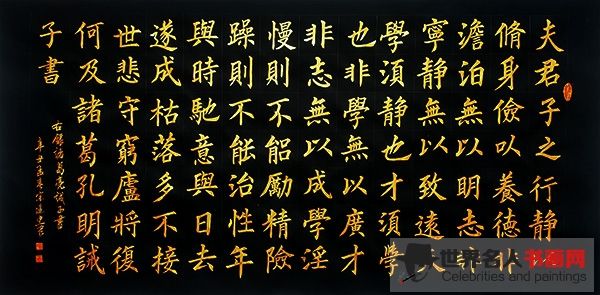 夫君子之行静以
脩身儉以養德非
澹泊無以明志非
寧静無以致遠夫
學須静也才須學
也非學無以廣才
非志無以成學淫
慢則不能勵精險
躁則不能治性年
與時馳意與日去
遂成枯落多不接
世悲守窮廬將復
何及諸葛孔明誡
子書
右録諸葛亮誡子書
辛丑年
世界名人书画网
Celebrities and paintings